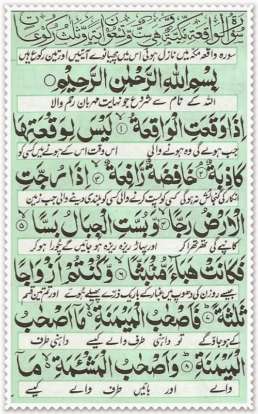 سورۃ الواقعۃ مکیۃ وھی ست و تسعون ایۃ و ثلث رکوعات
سورہ واقعہ مکہ میں نازل ہوئی اس میں چھیانوے آیتیں اور تین رکوع ہیں
بِسْمِ اللّٰهِ الرَّحْمٰنِ الرَّحِيْمِ
اللہ کے نام سے شروع جو نہایت مہربان رحم والا
اِذَا وَقَعَتِ الْوَاقِعَةُ ۙ﴿۱﴾ لَيْسَ لِوَقْعَتِهَا
جب ہولے گی وہ ہونے والی اس وقت اس کے ہونے میں کسی کو
كَاذِبَةٌ ۘ﴿۲﴾ خَافِضَةٌ رَّافِعَةٌ ۙ﴿۳﴾ اِذَا رُجَّتِ
انکار کی گنجائش نہ ہوگی کسی کو پست کرنے والی کسی کو بلندی دینے والی جب زمین
الْاَرْضُ رَجًّا ۙ﴿۴﴾ وَّبُسَّتِ الْجِبَالُ بَسًّا ۙ﴿۵﴾
کانپے گی تھرتھرا کر اور پہاڑ ریزہ ریزہ ہو جائیں گے چورا ہو کر
فَكَانَتْ هَبَآءً مُّنْۢبَثًّا ۙ﴿۶﴾ وَّكُنْتُمْ اَزْوَاجًا
جیسے روزن کی دھوپ میں غبار کے باریک ذرے پھیلے ہوئے اور تم تین قسم
ثَلٰثَةً ؕ﴿۷﴾ فَاَصْحٰبُ الْمَيْمَنَةِ ۙ۬ مَاۤ اَصْحٰبُ
کے ہو جاؤ گے تو داہنی طرف والے کیسے داہنی طرف
الْمَيْمَنَةِ ؕ﴿۸﴾ وَاَصْحٰبُ الْمَشْئَمَةِ ۙ۬ مَاۤ
والے اور بائیں طرف والے کیسے